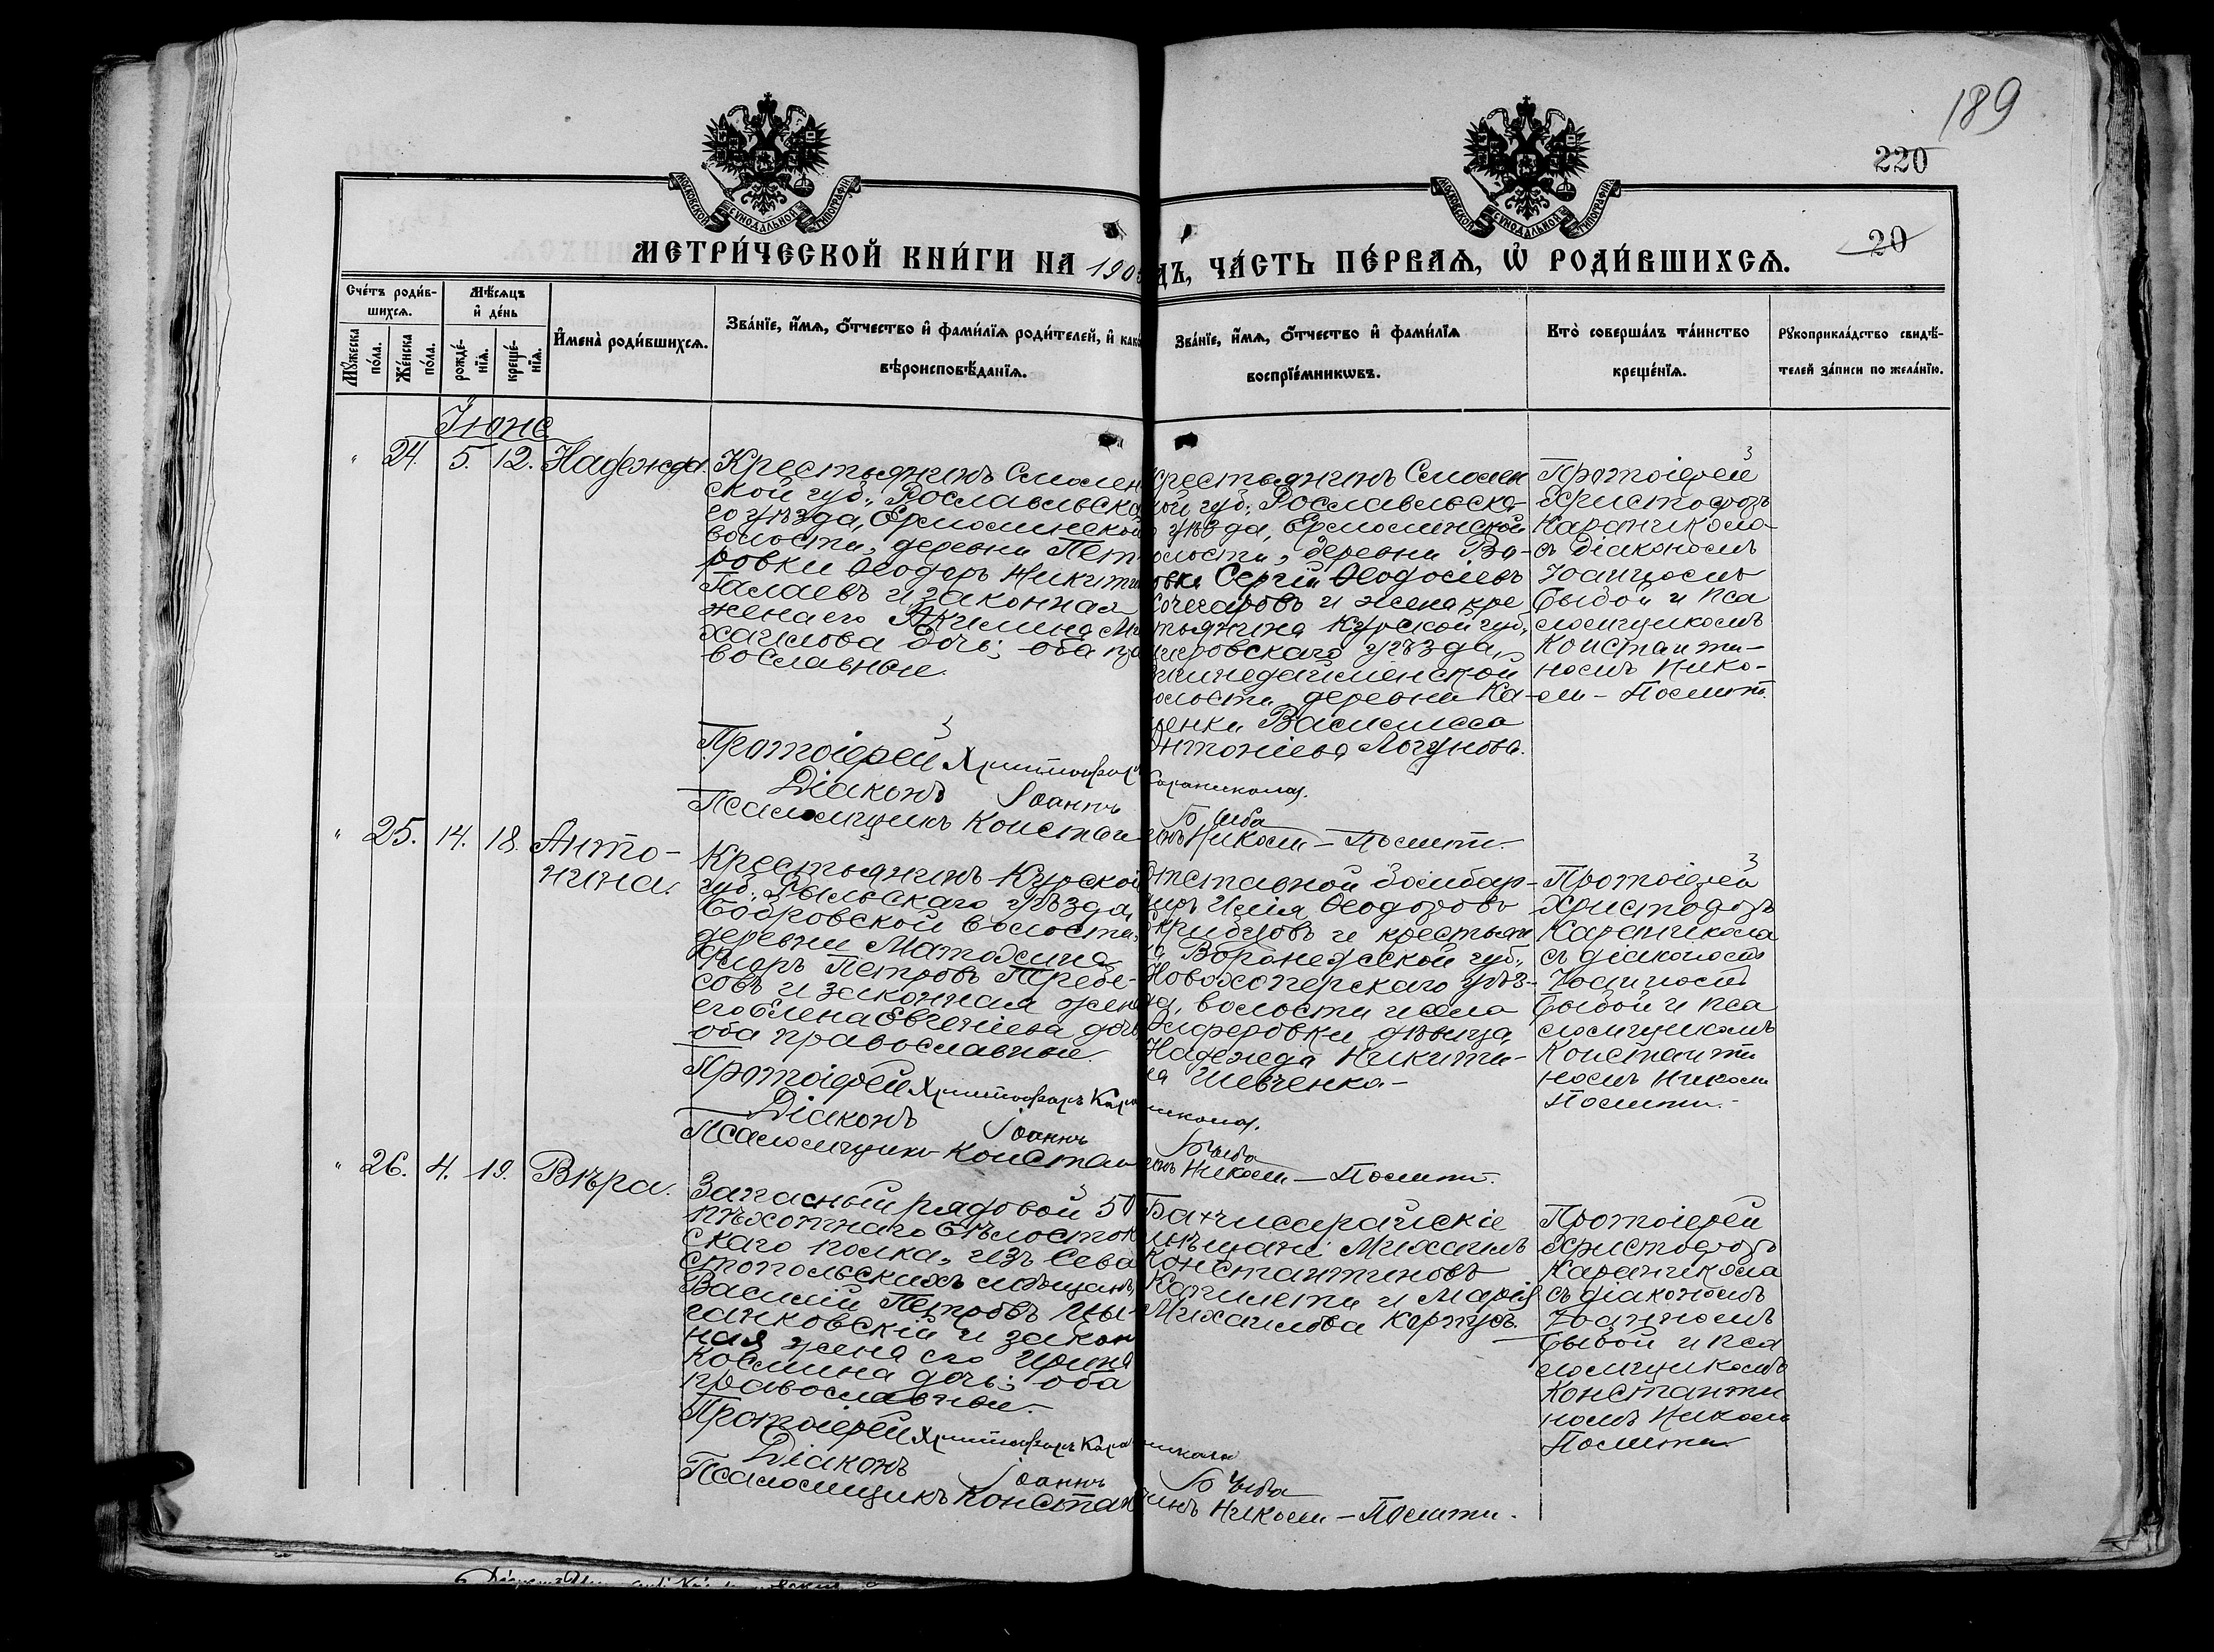 189
220
20
МОСКОВСКОЙ СѴНОДАЛЬНОЙ ТИПОГРАФІИ
МОСКОВСКОЙ СѴНОДАЛЬНОЙ ТИПОГРАФІИ
МЕТРИ́ЧЕСКОЙ КНИ́ГИ НА 190
ДЪ, ЧА́СТЬ ПЕ́РВАѦ, Ѽ РОДИ́ВШИХСѦ.
Сче́тъ роди́в-
шихсѧ.
Мꙋ́жеска
по́ла.
Же́нска
по́ла.
Мѣ́сѧцъ
и҆ де́нь
рожде́-
нїѧ.
креще́-
нїѧ.
И҆мена̀ роди́вшихсѧ.
Зва́нїе, и҆́мѧ, ѻ҆́тчество и҆ фами́лїѧ роди́телей, и҆ как
вѣроисповѣ́данїѧ.
Зва́нїе, и҆́мѧ, ѻ҆́тчество и҆ фами́лїѧ
воспрїе́мникѡвъ.
Кто̀ соверша́лъ та́инство
креще́нїѧ.
Рꙋкоприкла́дство свидѣ́-
телей за́писи по жела́нїю.
Іюнь
" 24. 5. 12. Надежда.
Крестьянинъ Смолен
ской губ., Рославльска
го уѣзда, Ермолинской
волости, деревни Пет
ровки Ѳеодоръ Никити
Талаевъ и законная
жена его Акилина Ми
хаилова дочь; оба пра
вославные.
рестьянинъ Смолен
кой губ., Рославльска-
о уѣзда, Ермолинской
олости, деревни
Сергій Ѳеодосіевъ
и жена кре
тьянина Курской губ.,
уѣзда,
олости деревни Ка-
енки Василисса
Антоніева Логунова.
Протоіерей
Христофоръ
Караникола
съ діакономъ
Іоанномъ
Быбой и пса
ломщикомъ
Константи-
номъ Нико-
ли - Полити.
Протоіерей Христофоръ Караникола.
Діаконъ Іоаннъ Быба
Псаломщикъ Константинъ Николи - Полити.
" 25. 14. 18. Анто-
нина.
Крестьянинъ Курской
губ., Рыльскаго уѣзда,
Бобровской волости,
деревни
Петровъ
совъ и законная жена
его Елена Евгеніева дочь
оба православные.
Отставной бомбар-
диръ Илія Ѳеодоровъ
Скрибцовъ и крестьян
Воронежской губ.,
Новохоперскаго уѣз-
да, волости и села
Алферовки дѣвица
Надежда Никити-
на Шевченко -
Протоіерей
Христофоръ
Караникола
съ діакономъ
Іоанномъ
Быбой и пса
ломщикомъ
Константи
номъ Николи
Полити. -
Протоіерей Христофоръ Караникола.
Діаконъ Іоаннъ Быба
Псаломщикъ Константинъ Николи - Полити.
" 26. 4. 19. Вѣра.
Запасный рядовой 50
пѣхотнаго Бѣлосток
скаго полка, изъ Сева
стопольскихъ мѣщанъ,
Василій Петровъ Цы-
ганковскій и закон
ная жена его Ирина
Космина дочь; оба
православные. -
Бахчисарайскіе
мѣщане Михаилъ
Константиновъ
Капилети и Марія
Михаилова Карпусъ.
Протоіерей
Христофоръ
Караникола
съ діакономъ
Іоанномъ
Быбой и пса
ломщикомъ
Константи
номъ Николи
Полити.
Протоіерей Христофоръ Караникола
Діаконъ Іоаннъ Быба
Псаломщикъ Константинъ Николи - Полити.